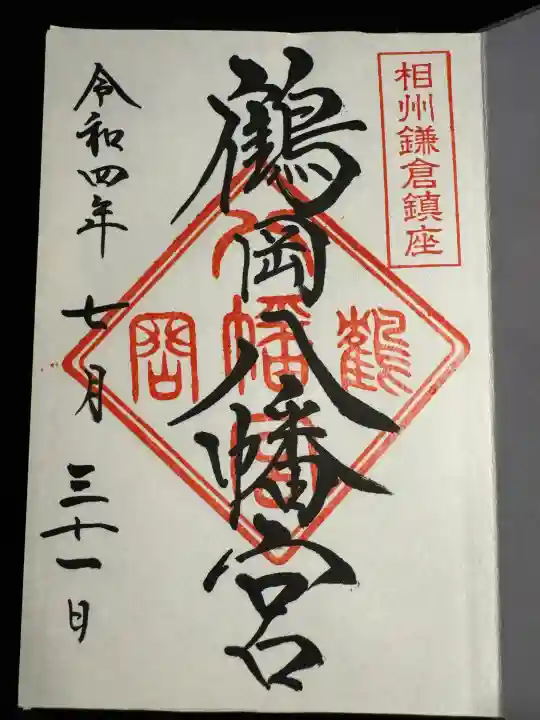 相州鎌倉鎮座
鶴岡八幡宮
鶴 八幡宮 岡
令和四年七月三十一日